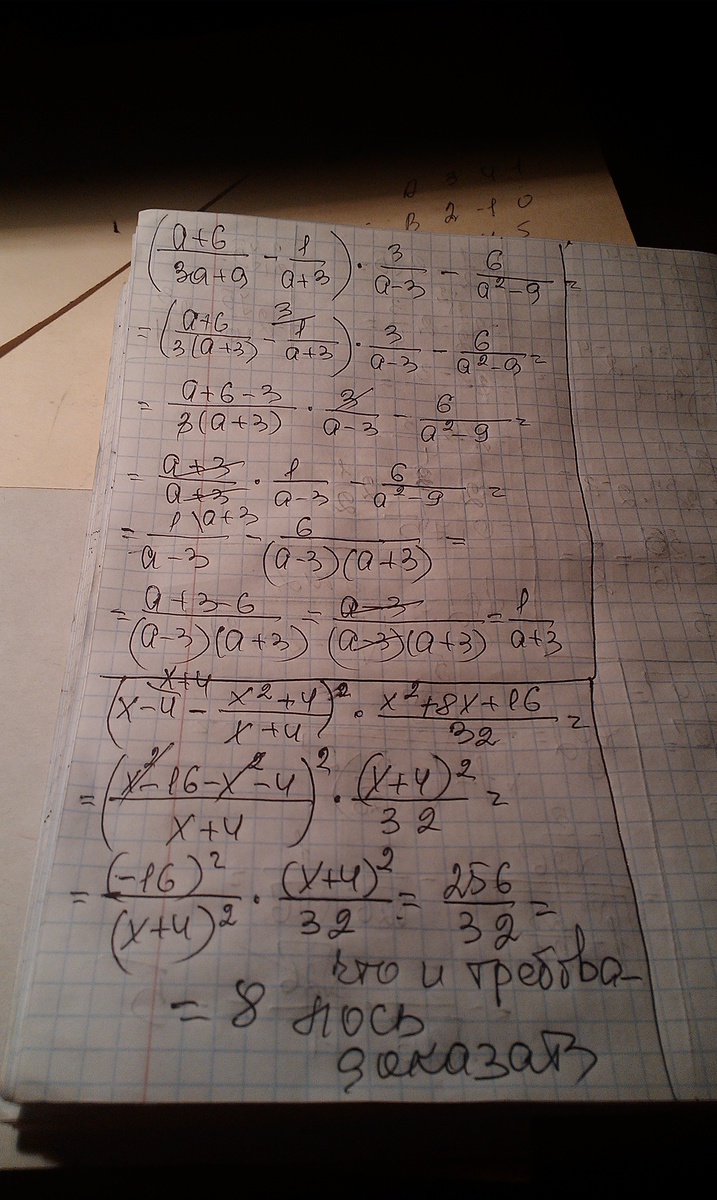 A 3 4
B 2 -1 0
5
((a+6)/(3a+9) - 1/(a+3)) · 3/(a-3) - 6/(a²-9) =
= ((a+6)/(3(a+3)) - 1/(a+3) ^3) · 3/(a-3) - 6/(a²-9) =
= (a+6-3)/(3(a+3)) · 3/(a-3) - 6/(a²-9) =
= (a+3)/(a+3) · 1/(a-3) - 6/(a²-9) =
= 1\a+3/(a-3) - 6/((a-3)(a+3)) =
= (a+3-6)/((a-3)(a+3)) = (a-3)/((a-3)(a+3)) = 1/(a+3)
(x-4 ^x+4 - (x²+4)/(x+4))² · (x²+8x+16)/32 =
= ((x²-16-x²-4)/(x+4))² · (x+4)²/32 =
= (-16)²/(x+4)² · (x+4)²/32 = 256/32 =
что и требова-
= 8 лось
доказать